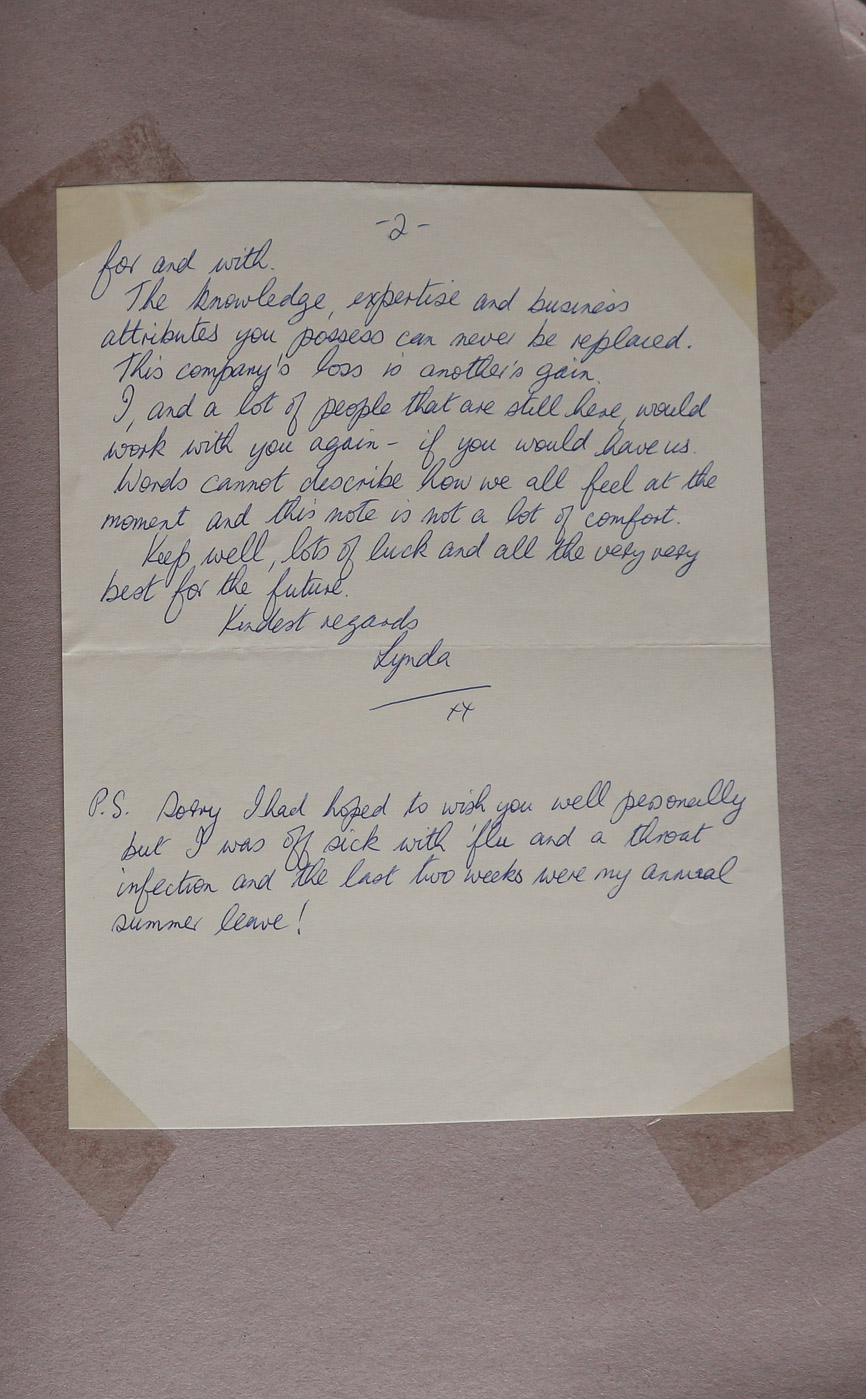 -2-
for and with.
The knowledge, expertise and business
attributes you possess can never be replaced.
This company's loss is another's gain.
I, and a lot of people that are still here, would
work with you again - if you would have us.
Words cannot describe how we all feel at the
moment and this note is not a lot of comfort.
Keep well, lots of luck and all the very very
best for the future.
Kindest regards
Lynda
xx
P.S. Sorry I had hoped to wish you well personally
but I was off sick with 'flu and a throat
infection and the last two weeks were my annual
summer leave!